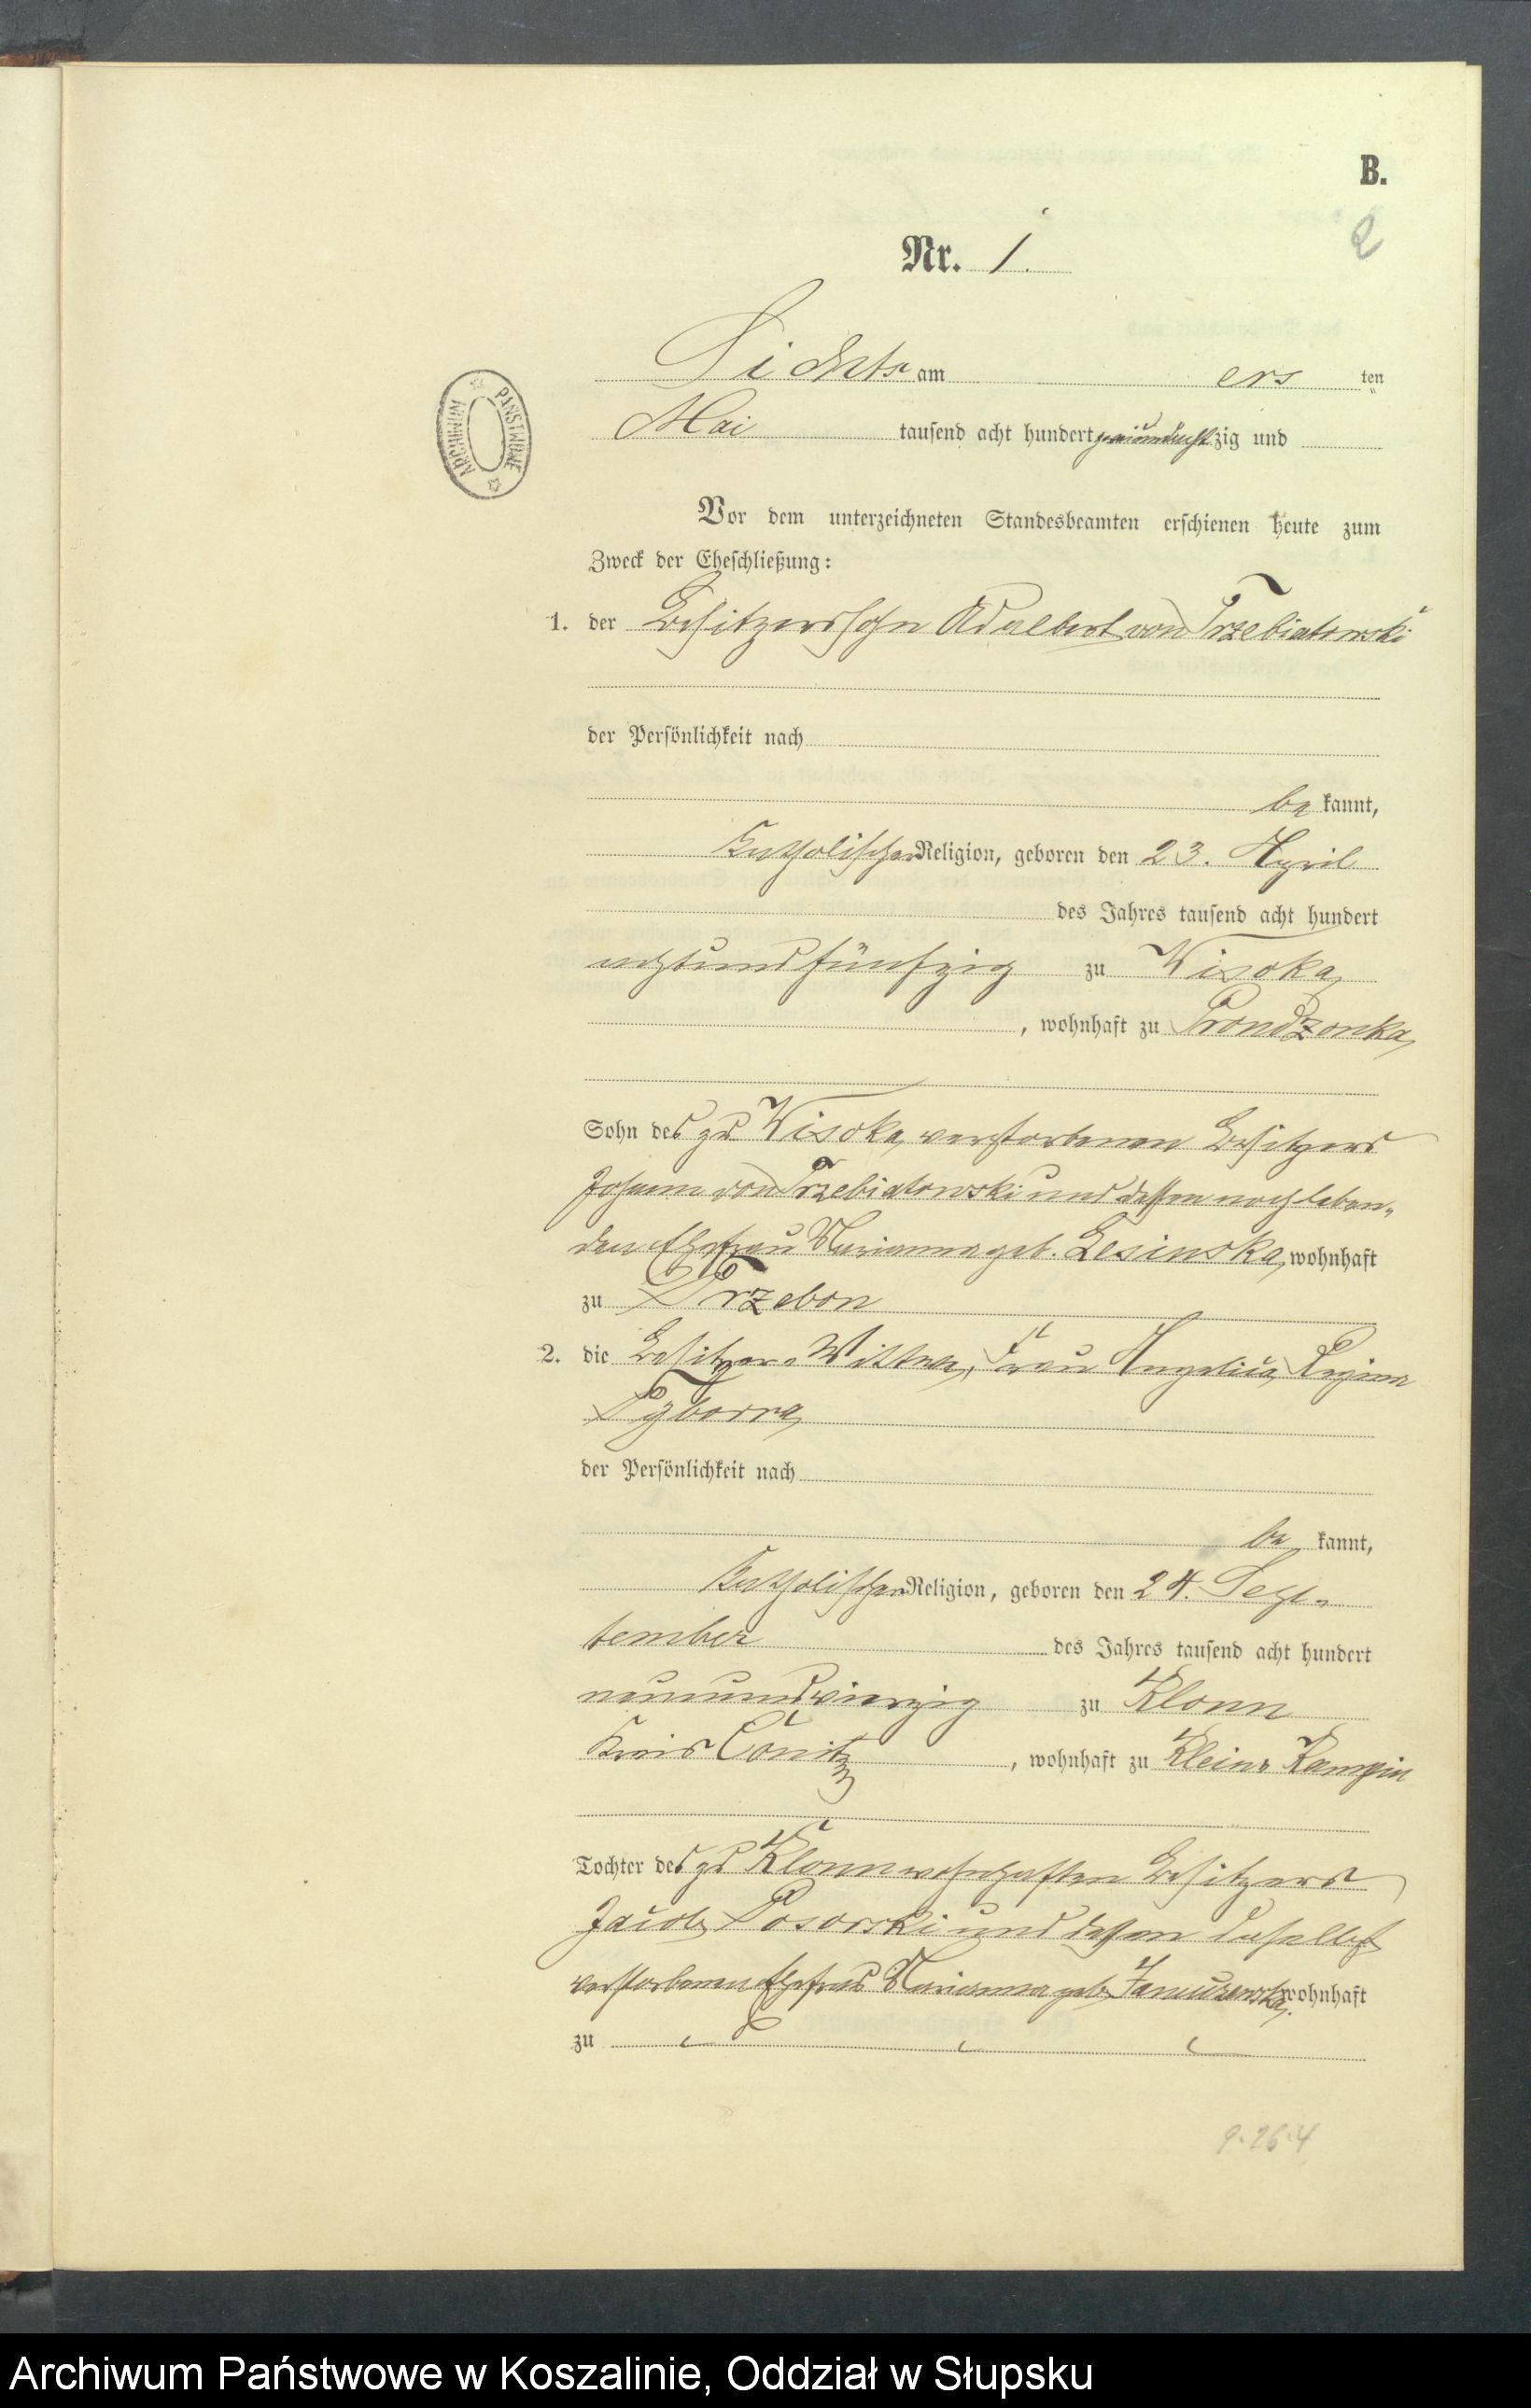 B.
2
Nr. 1.
am ersten
Mai tausend acht hundert zweiundachtzig und
Vor dem unterzeichneten Standesbeamten erschienen heute zum
Zweck der Eheschließung:
1. der Besitzerssohn Adalbert von Trzebiatowski
der Persönlichkeit nach
bekannt,
katholischer Religion, geboren den 23. April
des Jahres tausend acht hundert
achtundfünfzig zu Wisoka
, wohnhaft zu Prondzonka
Sohn des zu Wisoka verstorbenen Besitzers
Johann von Trzebiatowski und dessen noch leben-
den Ehefrau Marianna geb. Lesinska, wohnhaft
zu Trzebon
2. die Besitzer-Wittwe, Frau Angelica Regina
der Persönlichkeit nach
bekannt,
katholischer Religion, geboren den 24. Sep-
tember des Jahres tausend acht hundert
neunundvierzig zu Klonn
Kreis Conitz, wohnhaft zu Klein
Tochter des zu Klonn wohnhaften Besitzers
Jacob Posorski und dessen daselbst
verstorbenen Ehefrau Marianna geb. wohnhaft
zu
9.26.4
ARCHIWUM PAŃSTWOWE
Archiwum Państwowe w Koszalinie, Oddział w Słupsku